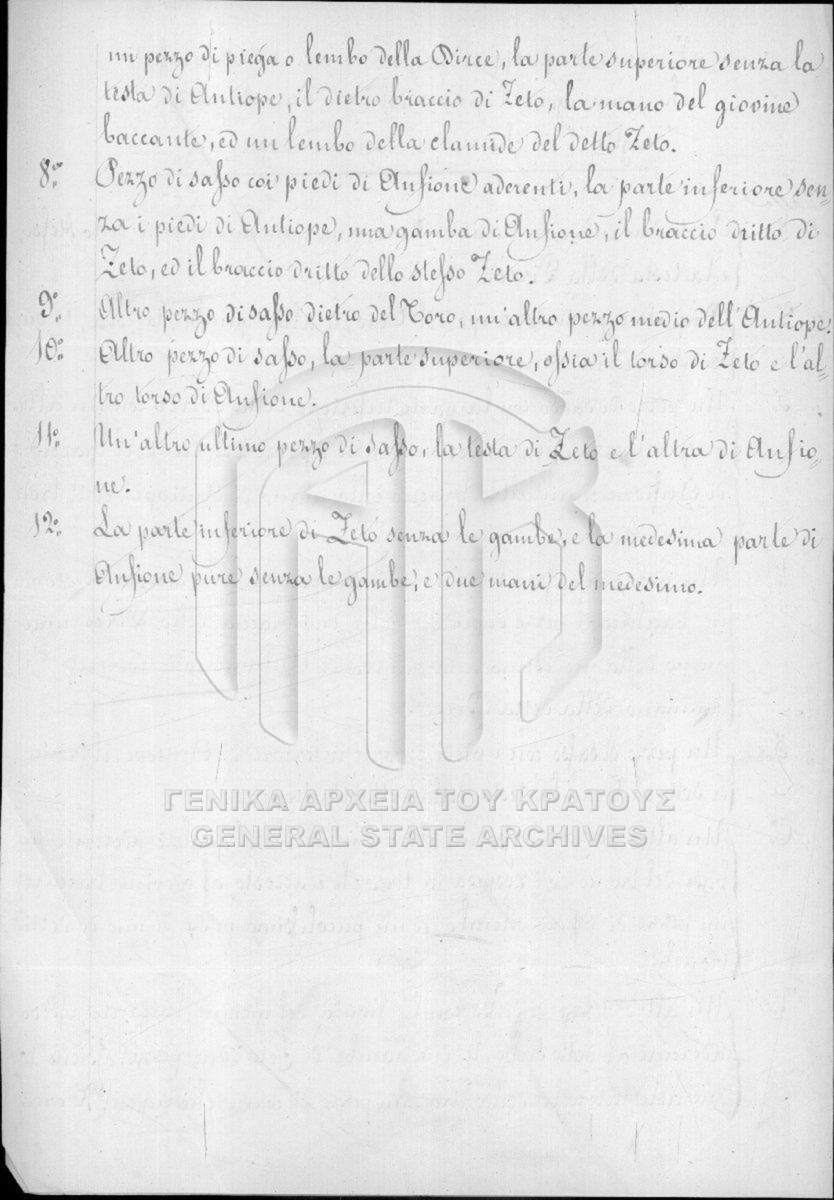 un pezzo di piega o lembo della Dirce, la parte superiore senza la
testa di Antiope, il dietro braccio di Zeto, la mano del giovine
baccante, ed un lembo della clamide del detto Zeto.
8º. Pezzo di sasso coi piedi di Anfione aderenti, la parte inferiore sen-
za i piedi di Antiope, una gamba di Anfione, il braccio dritto di
Zeto, ed il braccio dritto dello stesso Zeto.
9º. Altro pezzo di sasso dietro del Toro, un'altro pezzo medio dell'Antiope.
10º. Altro pezzo di sasso, la parte superiore, ossia il torso di Zeto e l'al-
tro torso di Anfione.
11º. Un'altro ultimo pezzo di sasso, la testa di Zeto e l'altra di Anfio-
ne.
12º. La parte inferiore di Zeto senza le gambe, e la medesima parte di
Anfione pure senza le gambe, e due mani del medesimo.
ΓΕΝΙΚΑ ΑΡΧΕΙΑ ΤΟΥ ΚΡΑΤΟΥΣ
GENERAL STATE ARCHIVES